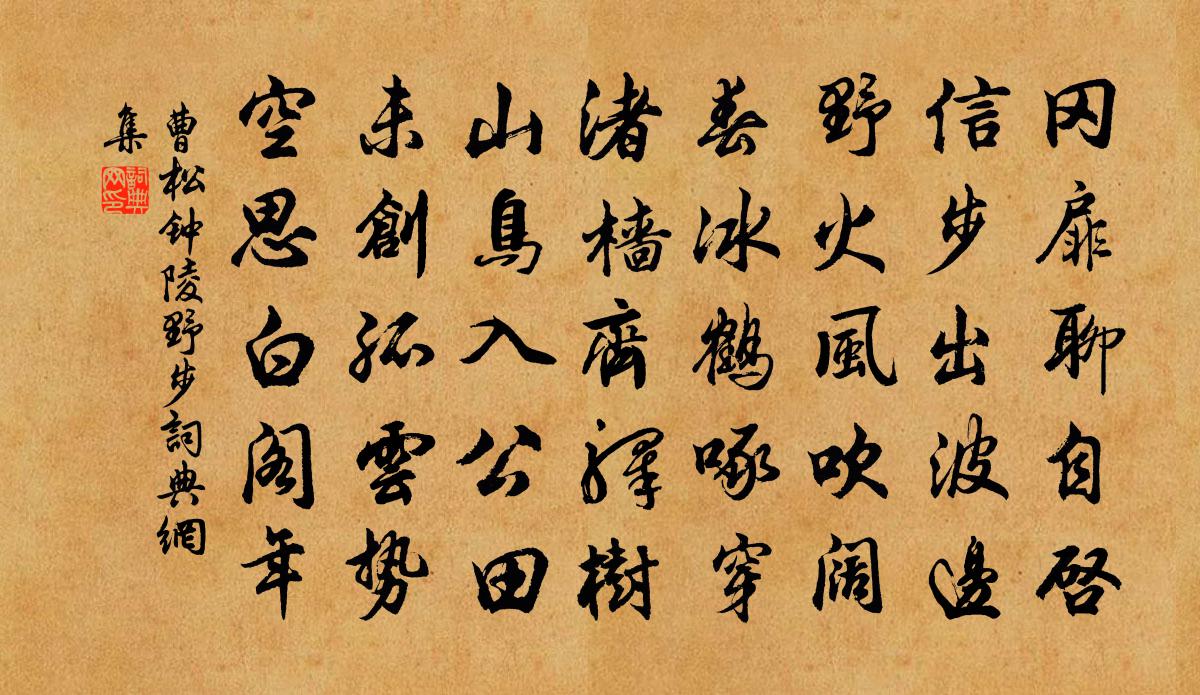 冈扉聊自启
信步出波邊
野火風吹阔
春冰鶴啄穿
渚樯齊驛樹
山鳥入公田
未創孤雲势
空思白阁年
曹松钟陵野步詞典網
集
詞典網印